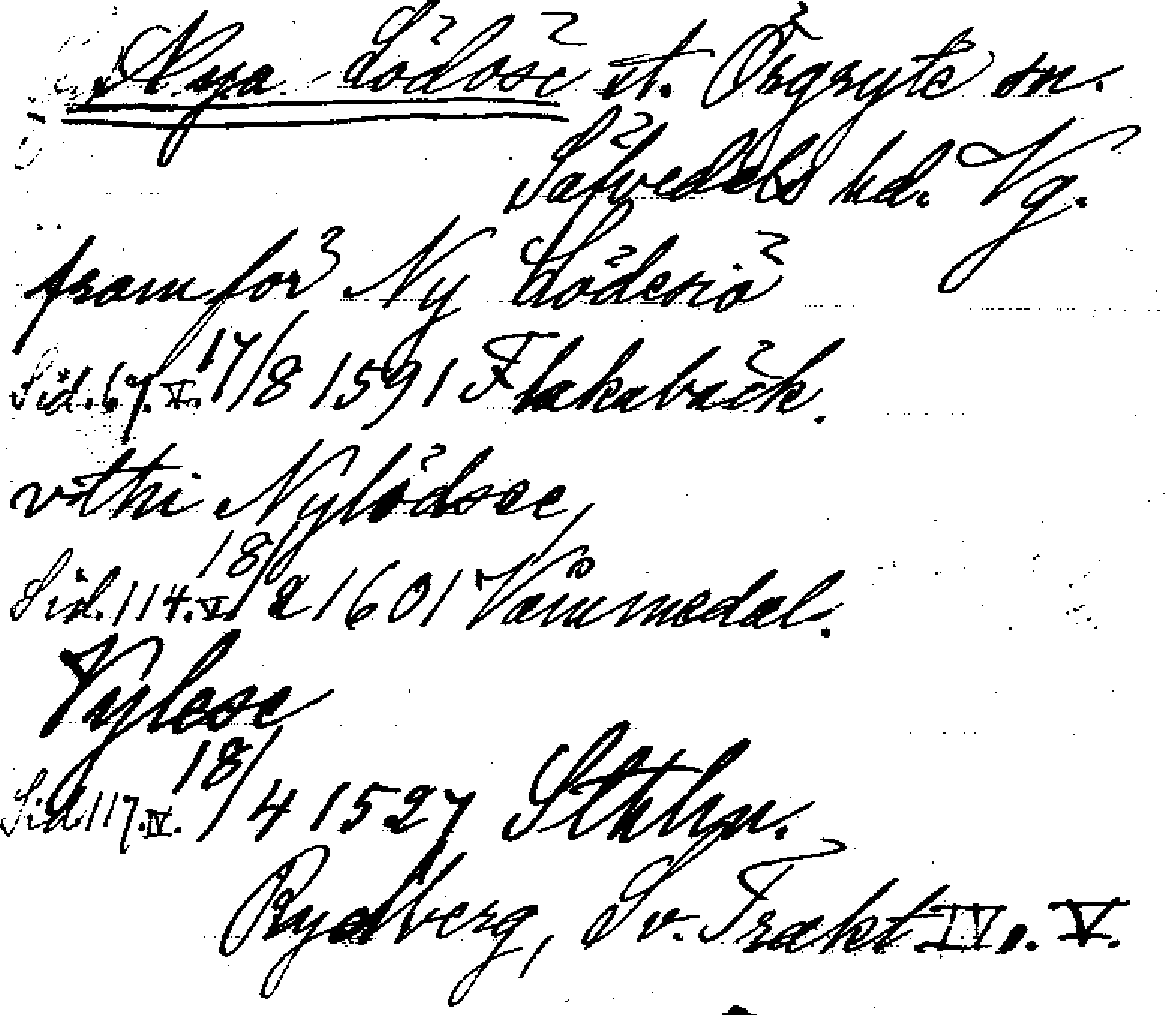 Nya Lödöse st. Örgryte sn.
Säfvedels hd. Vg.
framför Ny Lödesiö
Sid. 67. V. 17/8 1591 Flakabäck.
vthi Nylödsee,
Sid. 114. V. 18/2 1601 Våmmedal.
Nylese
Sid 117. IV. 18/4 1527 Sthlm.
Rydberg, Sv. Trakt. IV o. V.